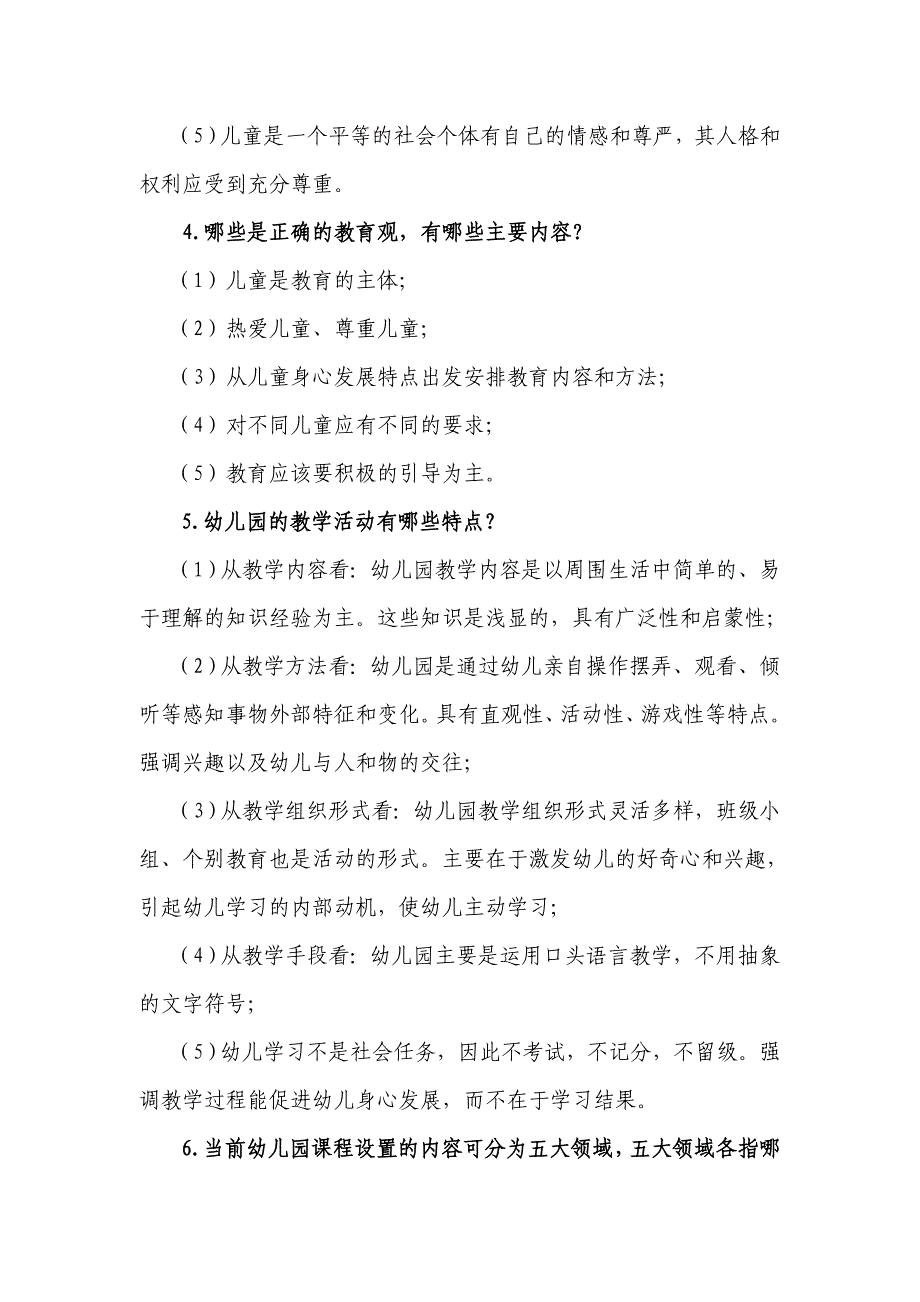 （5）儿童是一个平等的社会个体有自己的情感和尊严，其人格和
权利应受到充分尊重。
4.哪些是正确的教育观，有哪些主要内容？
（1）儿童是教育的主体；
（2）热爱儿童、尊重儿童；
（3）从儿童身心发展特点出发安排教育内容和方法；
（4）对不同儿童应有不同的要求；
（5）教育应该要积极的引导为主。
5.幼儿园的教学活动有哪些特点？
（1）从教学内容看：幼儿园教学内容是以周围生活中简单的、易
于理解的知识经验为主。这些知识是浅显的，具有广泛性和启蒙性；
（2）从教学方法看：幼儿园是通过幼儿亲自操作摆弄、观看、倾
听等感知事物外部特征和变化。具有直观性、活动性、游戏性等特点。
强调兴趣以及幼儿与人和物的交往；
（3）从教学组织形式看：幼儿园教学组织形式灵活多样，班级小
组、个别教育也是活动的形式。主要在于激发幼儿的好奇心和兴趣，
引起幼儿学习的内部动机，使幼儿主动学习；
（4）从教学手段看：幼儿园主要是运用口头语言教学，不用抽象
的文字符号；
（5）幼儿学习不是社会任务，因此不考试，不记分，不留级。强
调教学过程能促进幼儿身心发展，而不在于学习结果。
6.当前幼儿园课程设置的内容可分为五大领域，五大领域各指哪